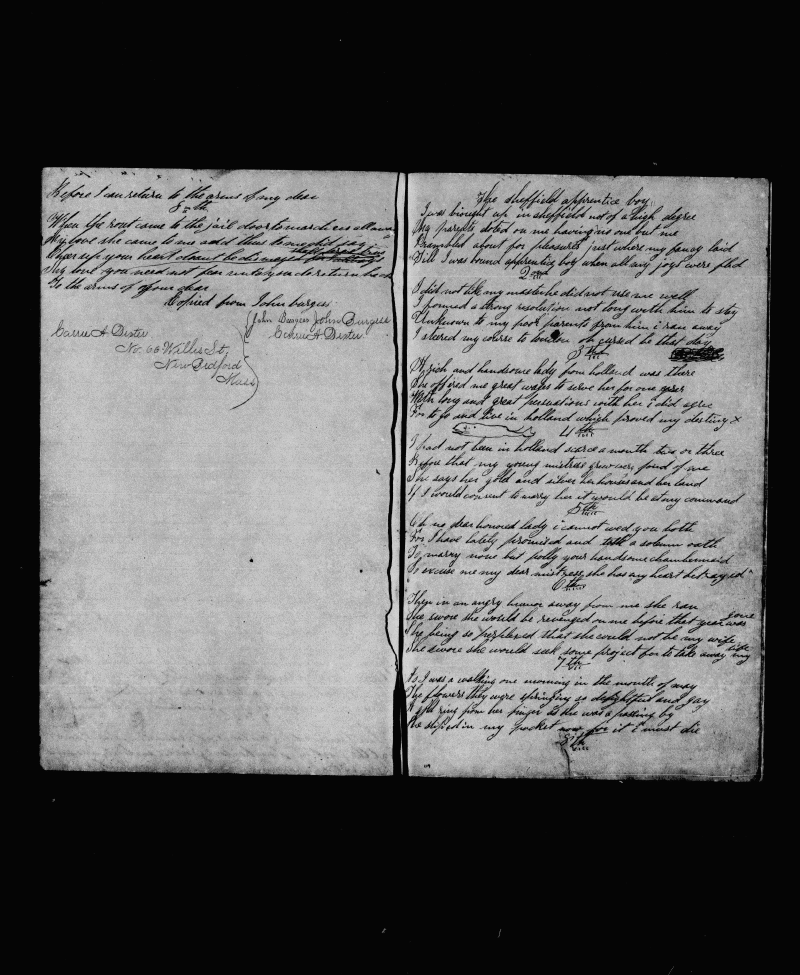 Before I can return to the arms of my dear
8th
When the rout came to the jail door to march us all away
My love she came to me and thus to me did say
Chear up your heart dont be dismayed
love you need not fear until you do return back
To the arms of your dear
Copied from John burgess
Carrie A Dexter
No. 66 Willis St,
New Bedford
Mass
John Burgess John Burgess
Carrie A Dexter
The sheffield apprentice boy
I was brought up in sheffield not of a high degree
My parents doted on me having no one but me
I rambled about for pleasure just where my fancy laid
Till I was bound apprentice boy when all my joys were fled
2nd
I did not like my master he did not use me well
I formed a strong resolution not long with him to stay
Unknown to my poor parents from him i ran away
I steered my course to london oh cursed be that day
3rd
A rich and handsome lady from holland was there
She offered me great wages to serve her for one year
With long and great persuations with her i did agree
For to go and live in holland which proved my destiny x
4th
I had not been in holland scarce a month two or three
Before that my young mistress grew very fond of me
She says her gold and silver her houses and her land
If I would consent to marry her it would be at my command
5th
Oh no dear honored lady i cannot wed you both
For I have lately promised and took a solumn oath
To marry none but polly your handsome chambermaid
So excuse me my dear mistress she has my heart betrayed
6th
Then in an angry humor away from me she ran
She swore she would be revenged on me before that year was gone
She being so perplexed that she could not be my wife
She swore she would seek some project for to take away my life
7th
As I was a walking one morning in the month of may
The flowers they were springing so delightful and gay
A gold ring from her finger as she was a passing by
She sliped in my pocket now for it i must die
8th